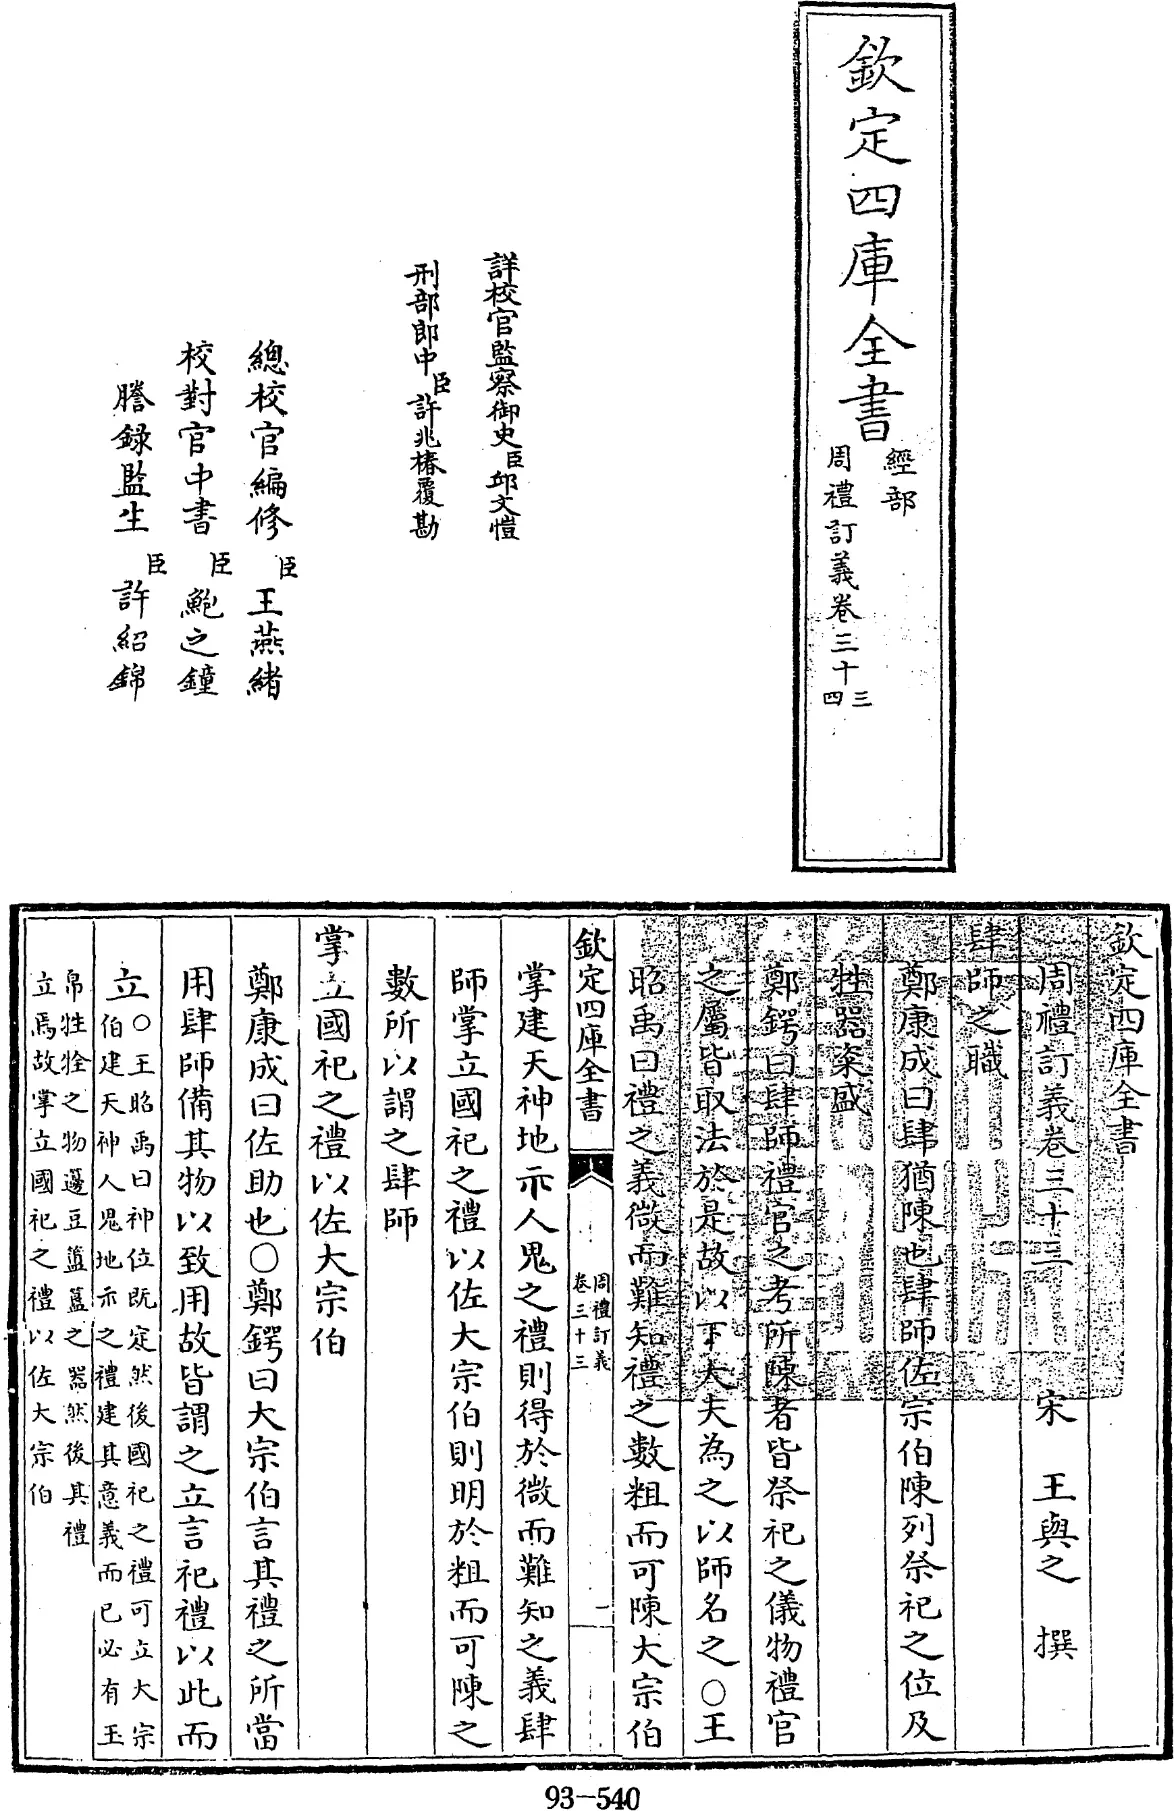 欽定四庫全書
經部
周禮訂義卷三十三
四
詳校官監察御史臣邱文愷
刑部郎中臣許兆椿覆勘
總校官編修臣王燕緒
校對官中書臣鮑之鐘
謄録監生臣許紹錦
欽定四庫全書
周禮訂義卷三十三 宋 王與之 撰
肆師之職
鄭康成曰肆猶陳也肆師佐宗伯陳列祭祀之位及
牲器粢盛
鄭鍔曰肆師禮官之考所陳者皆祭祀之儀物禮官
之屬皆取法於是故以下大夫為之以師名之○王
昭禹曰禮之義微而難知禮之數粗而可陳大宗伯
欽定四庫全書
周禮訂義
卷三十三
一
掌建天神地示人鬼之禮則得於微而難知之義肆
師掌立國祀之禮以佐大宗伯則明於粗而可陳之
數所以謂之肆師
掌立國祀之禮以佐大宗伯
鄭康成曰佐助也○鄭鍔曰大宗伯言其禮之所當
用肆師備其物以致用故皆謂之立言祀禮以此而
立○王昭禹曰神位既定然後國祀之禮可立大宗
伯建天神人鬼地示之禮建其意義而已必有玉
帛牲牷之物籩豆簠簋之器然後其禮
立焉故掌立國祀之禮以佐大宗伯
93-540